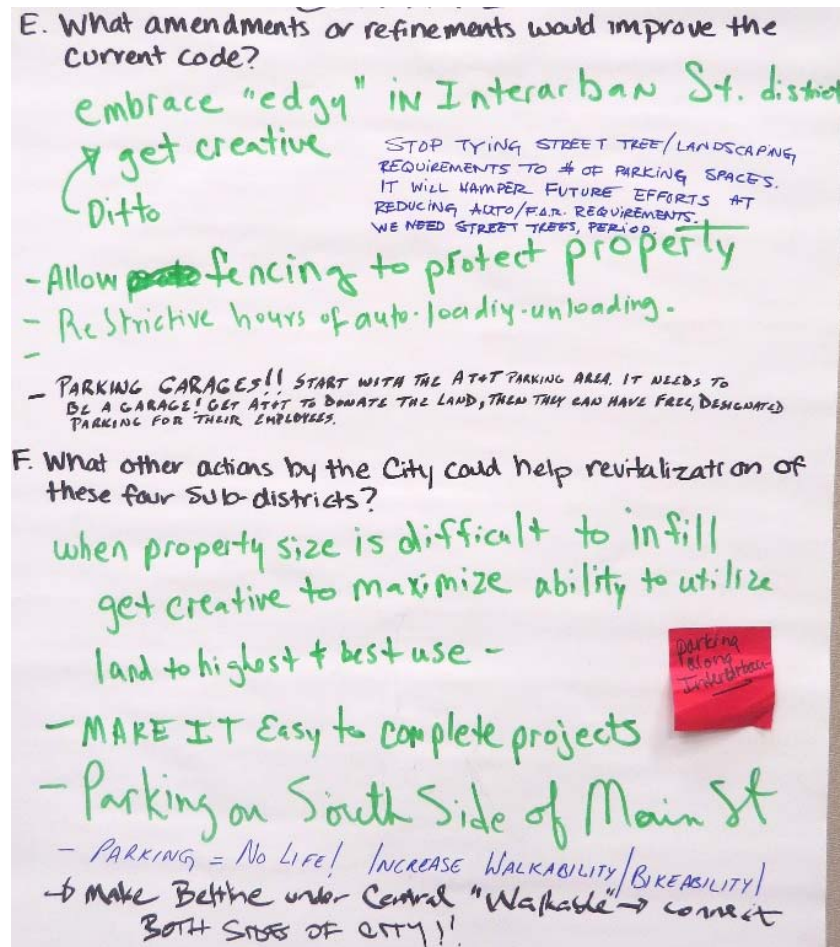 E. What amendments or refinements would improve the
current code?
embrace "edgy" in Interarban St. district
get creative
Ditto
STOP TYING STREET TREE/LANDSCAPING
REQUIREMENTS TO # OF PARKING SPACES.
IT WILL HAMPER FUTURE EFFORTS AT
REDUCING AUTO/F.A.R. REQUIREMENTS.
WE NEED STREET TREES, PERIOD.
- Allow fencing to protect property
- Restrictive hours of auto-loadiy-unloading.
-
- PARKING GARAGES!! START WITH THE AT+T PARKING AREA. IT NEEDS TO
BE A GARAGE! GET AT+T TO DONATE THE LAND, THEN THEY CAN HAVE FREE, DESIGNATED
PARKING FOR THEIR EMPLOYEES.
F. What other actions by the City could help revitalization of
these four sub-districts?
when property size is difficult to infill
get creative to maximize ability to utilize
land to highest & best use -
parking
along
Interurban
- MAKE IT Easy to complete projects
- Parking on South Side of Main St
- PARKING = NO LIFE! INCREASE WALKABILITY/BIKEABILITY!
→ Make Beltline under Central "Walkable" → connect
BOTH SIDES OF CITY!!